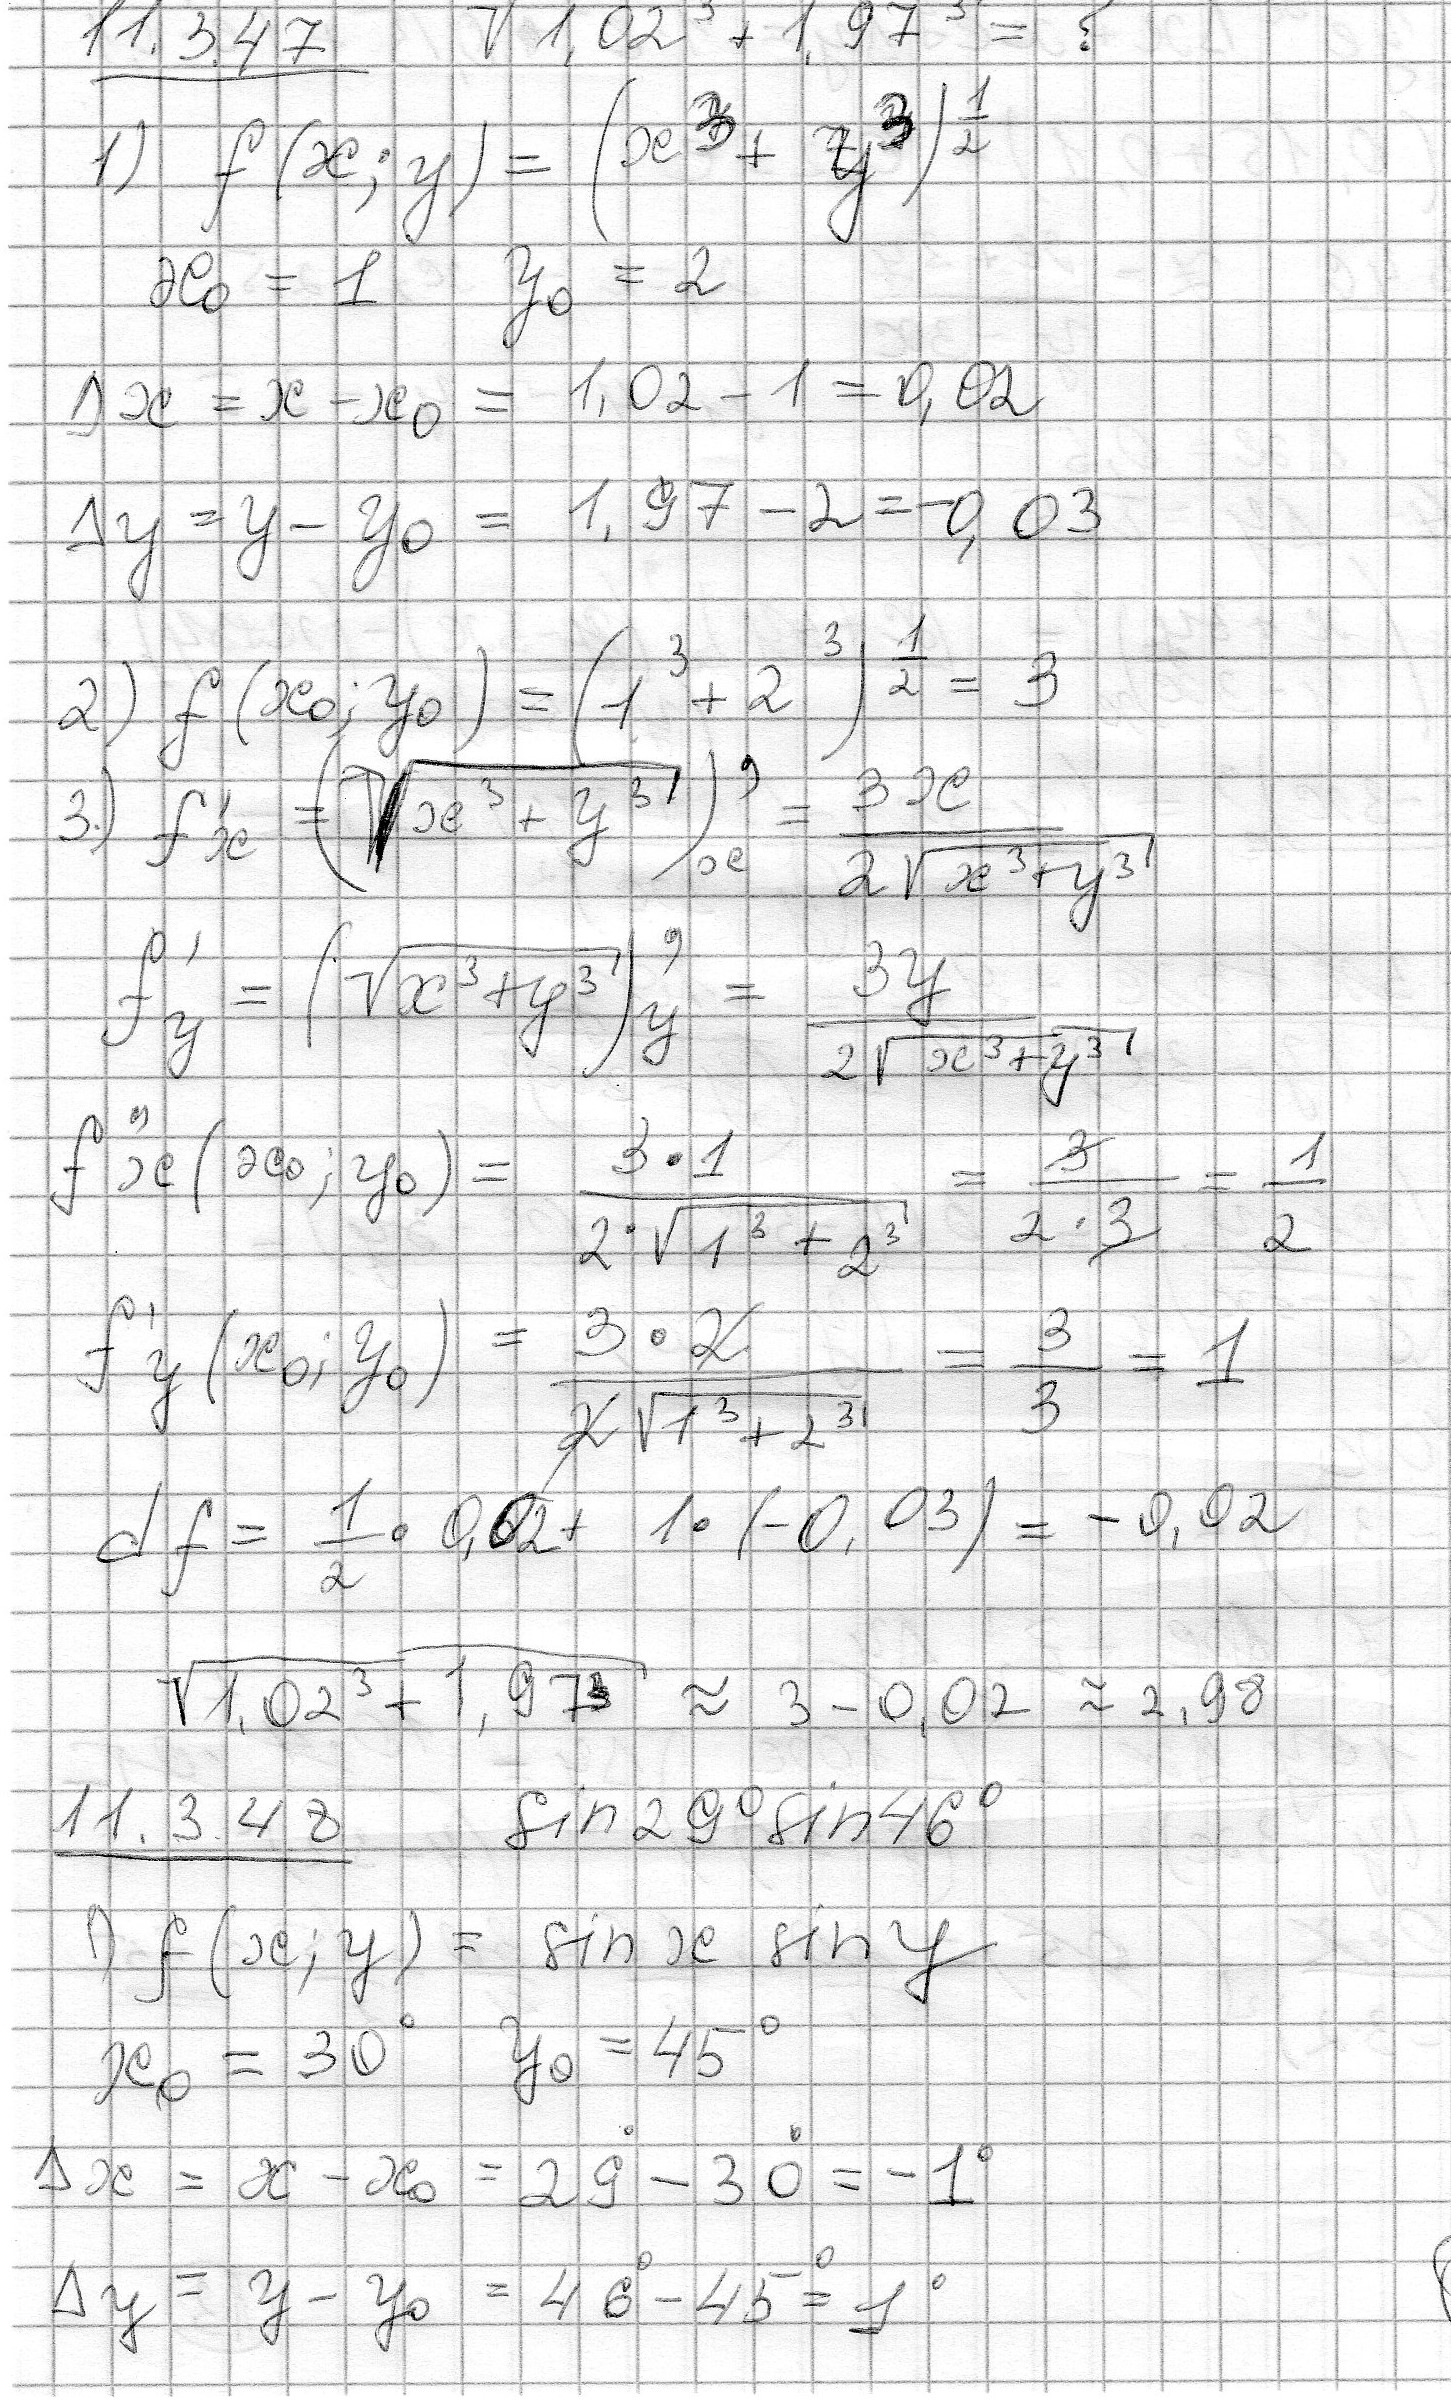 11.3.47 √1,02³ + 1,97³ = ?
1) f(x; y) = (x³ + y³)^(1/2)
x₀ = 1 y₀ = 2
Δx = x - x₀ = 1,02 - 1 = 0,02
Δy = y - y₀ = 1,97 - 2 = -0,03
2) f(x₀; y₀) = (1³ + 2³)^(1/2) = 3
3.) f'x = (√(x³ + y³))'x = 3x / (2√(x³+y³))
f'y = (√(x³+y³))'y = 3y / (2√(x³+y³))
f"x(x₀; y₀) = 3·1 / (2·√(1³ + 2³)) = 3 / (2·3) = 1/2
f'y(x₀; y₀) = 3·2 / (2√(1³+2³)) = 3/3 = 1
df = 1/2 · 0,02 + 1·(-0,03) = -0,02
√(1,02³ + 1,97³) ≈ 3 - 0,02 ≈ 2,98
11.3.48 sin29° sin46°
1) f(x; y) = sin x sin y
x₀ = 30° y₀ = 45°
Δx = x - x₀ = 29° - 30° = -1°
Δy = y - y₀ = 46° - 45° = 1°